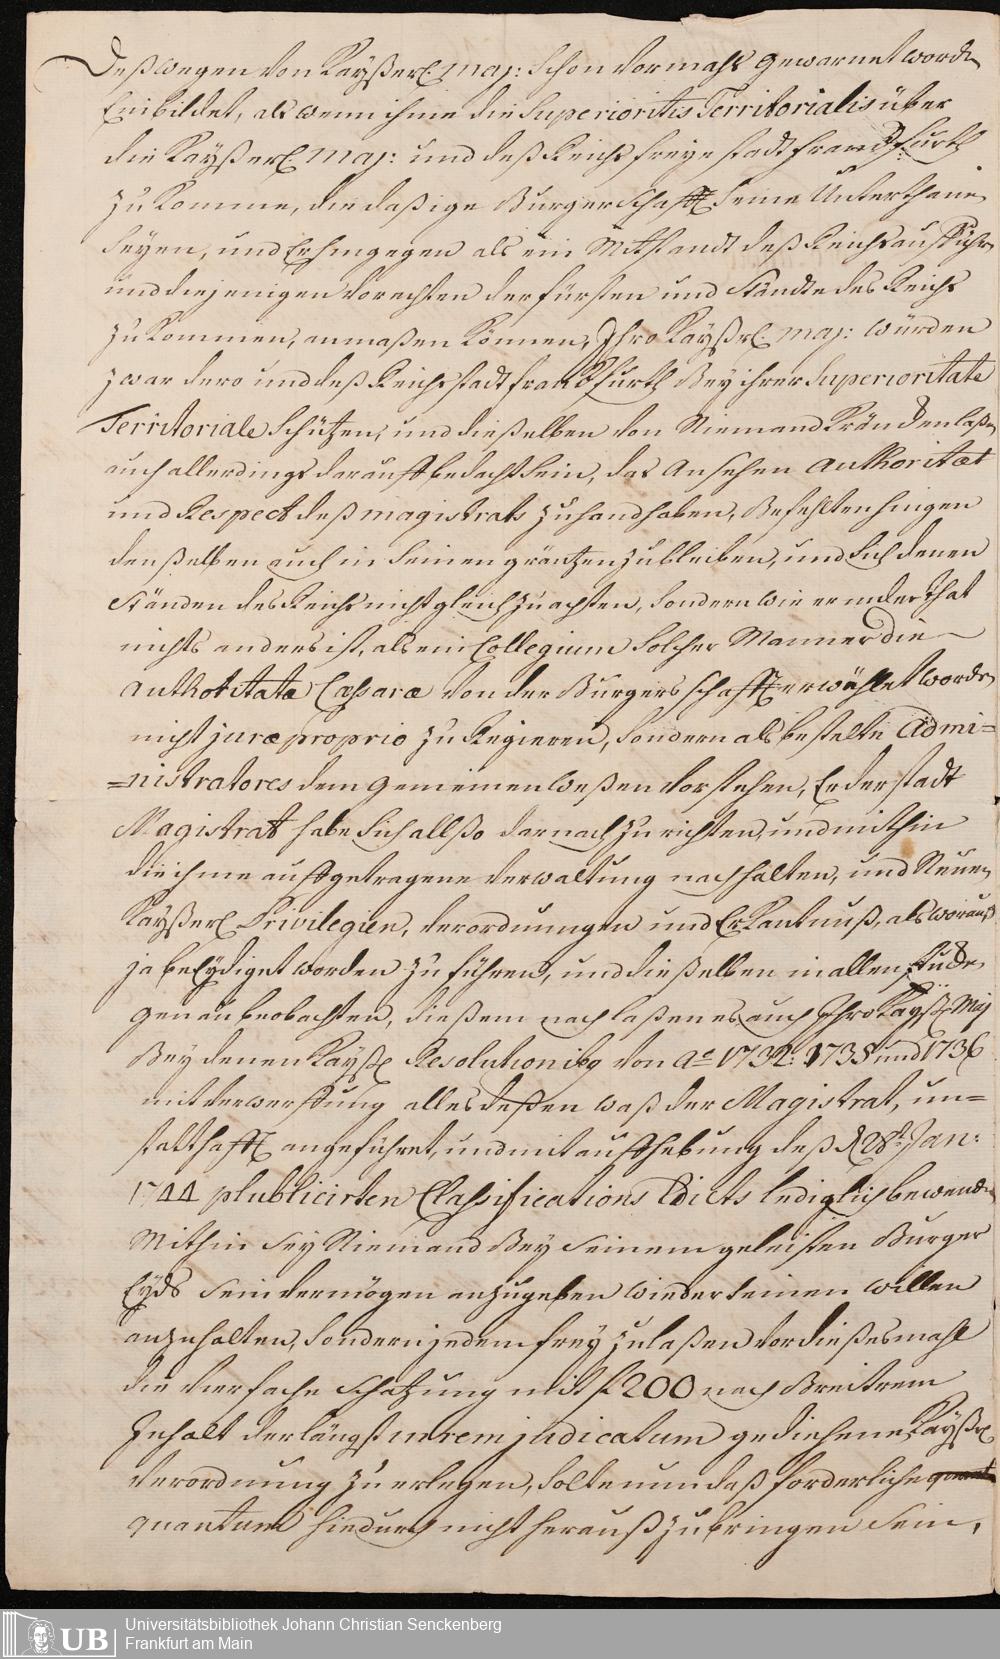 Deßwegen von Kayßerl. Maj: schon vormahls gewarnet worden
Einbildet, als wenn ihme die Superioritas Territorialis über
die Kayßerl. Maj: und deß Reichs freye stadt Franckfurth
zu komme, die dasige Burgerschafft seine Unterthanen
seyen, und Er hingegen als ein Mitstandt deß Reichs aufführen
und diejenigen vorrechten der fürsten und Stände des Reichs
zukommen, anmaßen können, Ihro Kayßrl. Maj: würden
zwar dero und deß Reichsstadt Franckfurth Bey ihrer Superioritate
Territoriale schützen, und dießelben von Niemand kräncken laßen
auch allerdings darauff bedacht sein, das Ansehen Authoritæt
und Respect deß Magistrats zu handhaben, Befehlten hingegen
denßelben auch in seinen gräntzen zu bleiben, und sich denen
Ständen des Reichs nicht gleich zu achten, sondern wie er in der That
nichts anders ist, als ein Collegium solcher Manner die
Authoritate Cæsarea von der Burgerschafft erwählet worden
nicht jure proprio zu Regieren, sondern als bestelte Admi=
=nistratores dem gemeinen Weßen vorstehen, Er der stadt
Magistrat habe sich allßo darnach zu richten, und mithin
die ihme auffgetragene verwaltung nach halten, und Neuen
Kayßerl Privilegien, verordnungen und Erkantnuß, als worauff
ja beeydiget worden zu führen, und dießelben in allen stücken
genau beobachten, dießem nach laßen es auch Ihro Kayßl. Maj
Bey denen Kayßl Resolutionibq von Aº 1732: 1735 und 1736
mit verwerffung alles deßen waß der Magistrat, un=
statthafft angeführet, und mit auffhebung deß d 28t. Jan:
1744 publicirten Classifications Edicts lediglich bewenden
Mithin sey Niemand Bey seinem geleisten Burger
Eyds sein vermögen anzugeben wieder seinen willen
anzuhalten, sondern jedem frey zulaßen vor dießesmahl
die vierfache schatzung mit f 200 nach
Inhalt der längst in rem judicatum gediehene Kayßrl
verordnung zu erlegen, solte nun daß forderliche
quantum hiedurch nicht herauß zubringen sein,
Universitätsbibliothek Johann Christian Senckenberg
Frankfurt am Main
UB